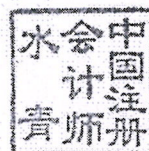 中国注册
会计师
水青